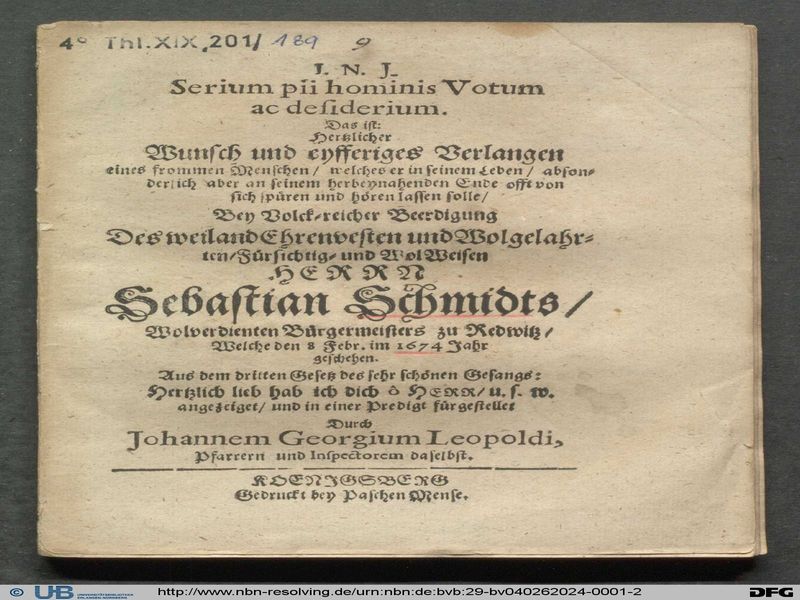 4° Thl. XIX, 201/ 189 9
J. N. J.
Serium pii hominis Votum
ac desiderium.
Das ist:
Hertzlicher
Wunsch und eyfferiges Verlangen
eines frommen Menschen/ welches er in seinem Leben/ abson-
derlich aber an seinem herbeynahenden Ende offt von
sich spüren und hören lassen solle/
Bey Volck-reicher Beerdigung
Des weiland Ehrenvesten und Wolgelahr-
ten/ Fürsichtig- und Wol Weisen
HERRN
Sebastian Schmidts/
Wolverdienten Bürgermeisters zu Redwitz/
Welche den 8 Febr. im 1674 Jahr
geschehen.
Aus dem dritten Gesetz des sehr schönen Gesangs:
Hertzlich lieb hab ich dich ô HERR/ u. s. w.
angezeiget/ und in einer Predigt fürgestellet
Durch
Johannem Georgium Leopoldi,
Pfarrern und Inspectorem daselbst.
KOENIGSBERG
Gedruckt bey Paschen Mense.
© UB UNIVERSITÄTSBIBLIOTHEK ERLANGEN-NÜRNBERG http://www.nbn-resolving.de/urn:nbn:de:bvb:29-bv040262024-0001-2 DFG